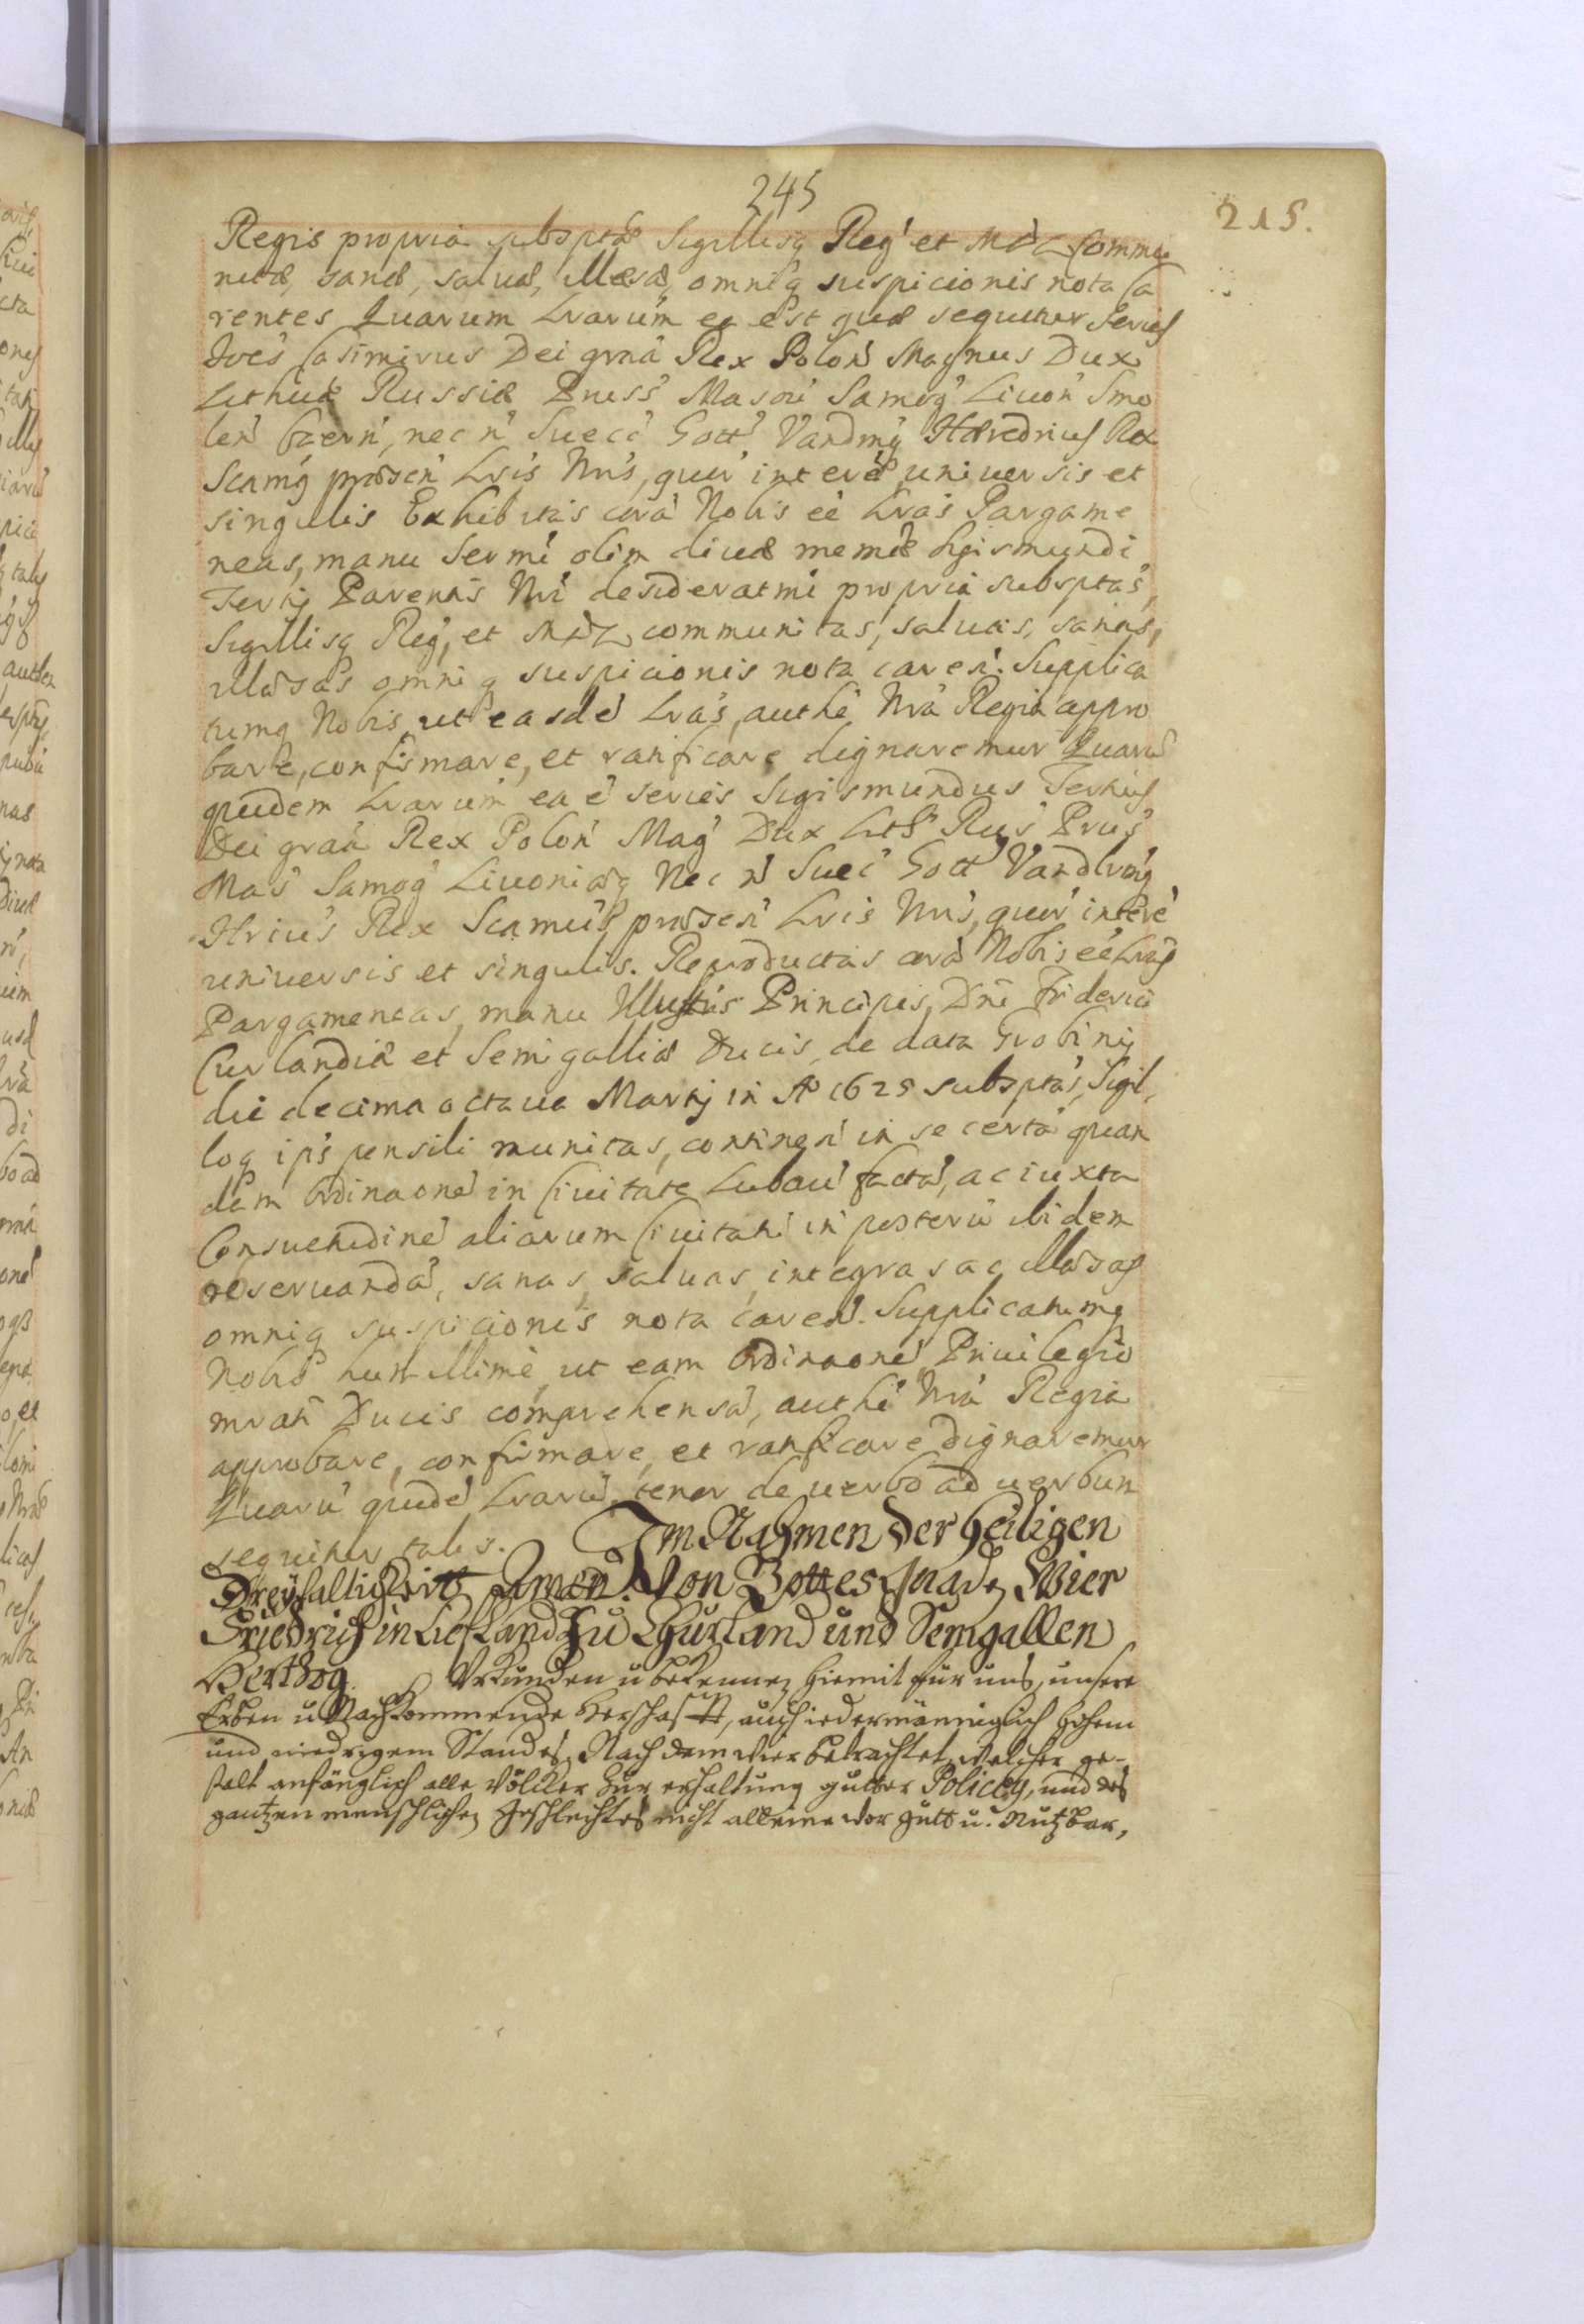 245
215.
Regis propria subsptæ Sigillisq Reg' et MDL Commu
nitæ, sanæ, saluæ, illæsæ, omniq suspicionis nota Ca
rentes Quarum Lrarum ea est quæ sequitur Series
Joes Casimirus Dei graa Rex Polon Magnus Dux
Lithuæ Russiæ Pruss' Masoũ Samog' Liuon' Smo
len' Czern', nec n' Suec' Gott' Vandmq Hæredrius Rex
Scamq præsen' Lris Nris, quor' intere, uniuersis et
singulis Exhibitas corà Nobis eè Lras Pargame
neas, manu Sermi olim diuæ memæ Sigismundi
Tertij Parentis Nri desideratmi propria subsptas,
Sigillisq Reg', et MDL communitas, saluas, sanas,
illæsas omniq suspicionis nota caren'. Supplica
tumq Nobis, ut easde' Lras, authe' Nra Regia appro
bare, confirmare, et ratificare dignaremur Quaru'
quidem Lrarum ea e' series Sigismundus Tertius
Dei graa Rex Polon' Mag' Dux Lith' Rus' Prus'
Mas' Samog' Liuoniæq Nec n' Suec' Gott' Vandlrmq
Hrius Rex Scamus præsen' Lris Nris, quor' intere'
uniuersis et singulis. Reproductas corà Nobis eè Lras
Pargameneas, manu Illustris Principis, Dni Friderici
Curlandiæ et Semigalliæ Ducis, de data Grobinij
die decima octaua Martij in Ao 1625 subsptas, Sigil,
loq ips' pensili munitas, continen' in se certa' quan
dam Ordinaone' in Ciuitate Lubau' facta', ac iuxta
Consuetudine' aliarum Ciuitatu' in posteru' ibidem
obseruanda', sanas, saluas, integras ac illæsas
omniq suspicionis nota caren'. Supplicatumq
Nobis humillime, ut eam Ordinaone' Priuilegio
mrati Ducis comprehensa', authe' Nra Regia
approbare, confirmare, et ratificare dignaremur
Quaru' quide' Lraru' tenor de uerbo ad uerbum
sequitur talis. Im Nahmen der heiligen
Dreyfaltickeitt Amen. Von Gottes gnaden Wier
Friedrich in Liefland Zu Churland und Semgallen
Hertzog. Vrkunden u bekennen hiemit für uns, unsere
Erben u Nachkommende Herschafft, auch iedermänniglich hohem
und niedrigem Standes, Nach dem wier betrachtet, welcher ge-
stalt anfänglich alle Völcker zur erhaltung gutter Policey, und des
gantzen menschlichen Geschlechtes nicht alleine vor gutt u. Nutzbar,